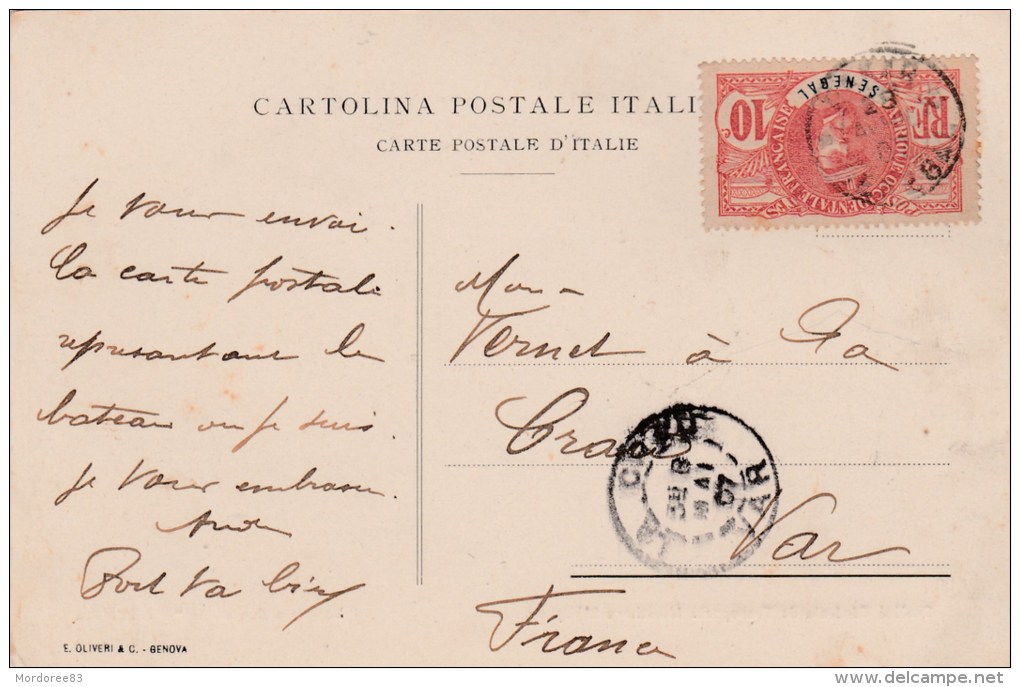 CARTOLINA POSTALE ITALI
CARTE POSTALE D'ITALIE
RF
SENEGAL
10
AFRIQUE OCCIDENTALE FRANÇAISE
POSTES
Je vous envoi
la carte postale
representant le
bateau ou je suis.
Je vous embrasse
Tout va bien
Mon-
Vernet à La
Crau
Var
France
LA CRAU
VAR
MAI
07
E. OLIVERI & C. - GENOVA
Mordoree83
delcampe.net